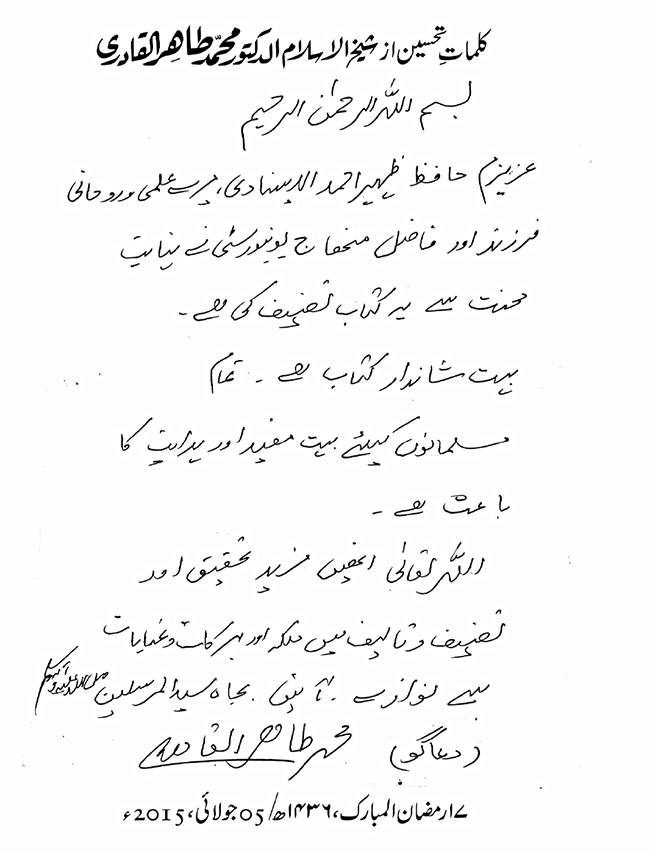 کلماتِ تحسین از شیخ الاسلام الدکتور محمد طاہر القادری
بسم اللہ الرحمٰن الرحیم
عزیزم حافظ ظہیر احمد الاسنادی، میرے علمی و روحانی
فرزند اور فاضل منھاج یونیورسٹی نے نہایت
محنت سے یہ کتاب تصنیف کی ھے ۔
بہت شاندار کتاب ھے ۔ تمام
مسلمانوں کیلئے بہت مفید اور ہدایت کا
باعث ھے ۔
اللہ تعالیٰ انھیں مزید تحقیق اور
تصنیف و تالیف میں ملکہ اور برکات و عنایات
سے نوازے ۔ آمین بجاہ سید المرسلین صلی اللہ علیہ وآلہ وسلم
(دعاگو) محمد طاھر القادری
۱۷ رمضان المبارک، ۱۴۳۶ھ/ 05 جولائی، 2015ء